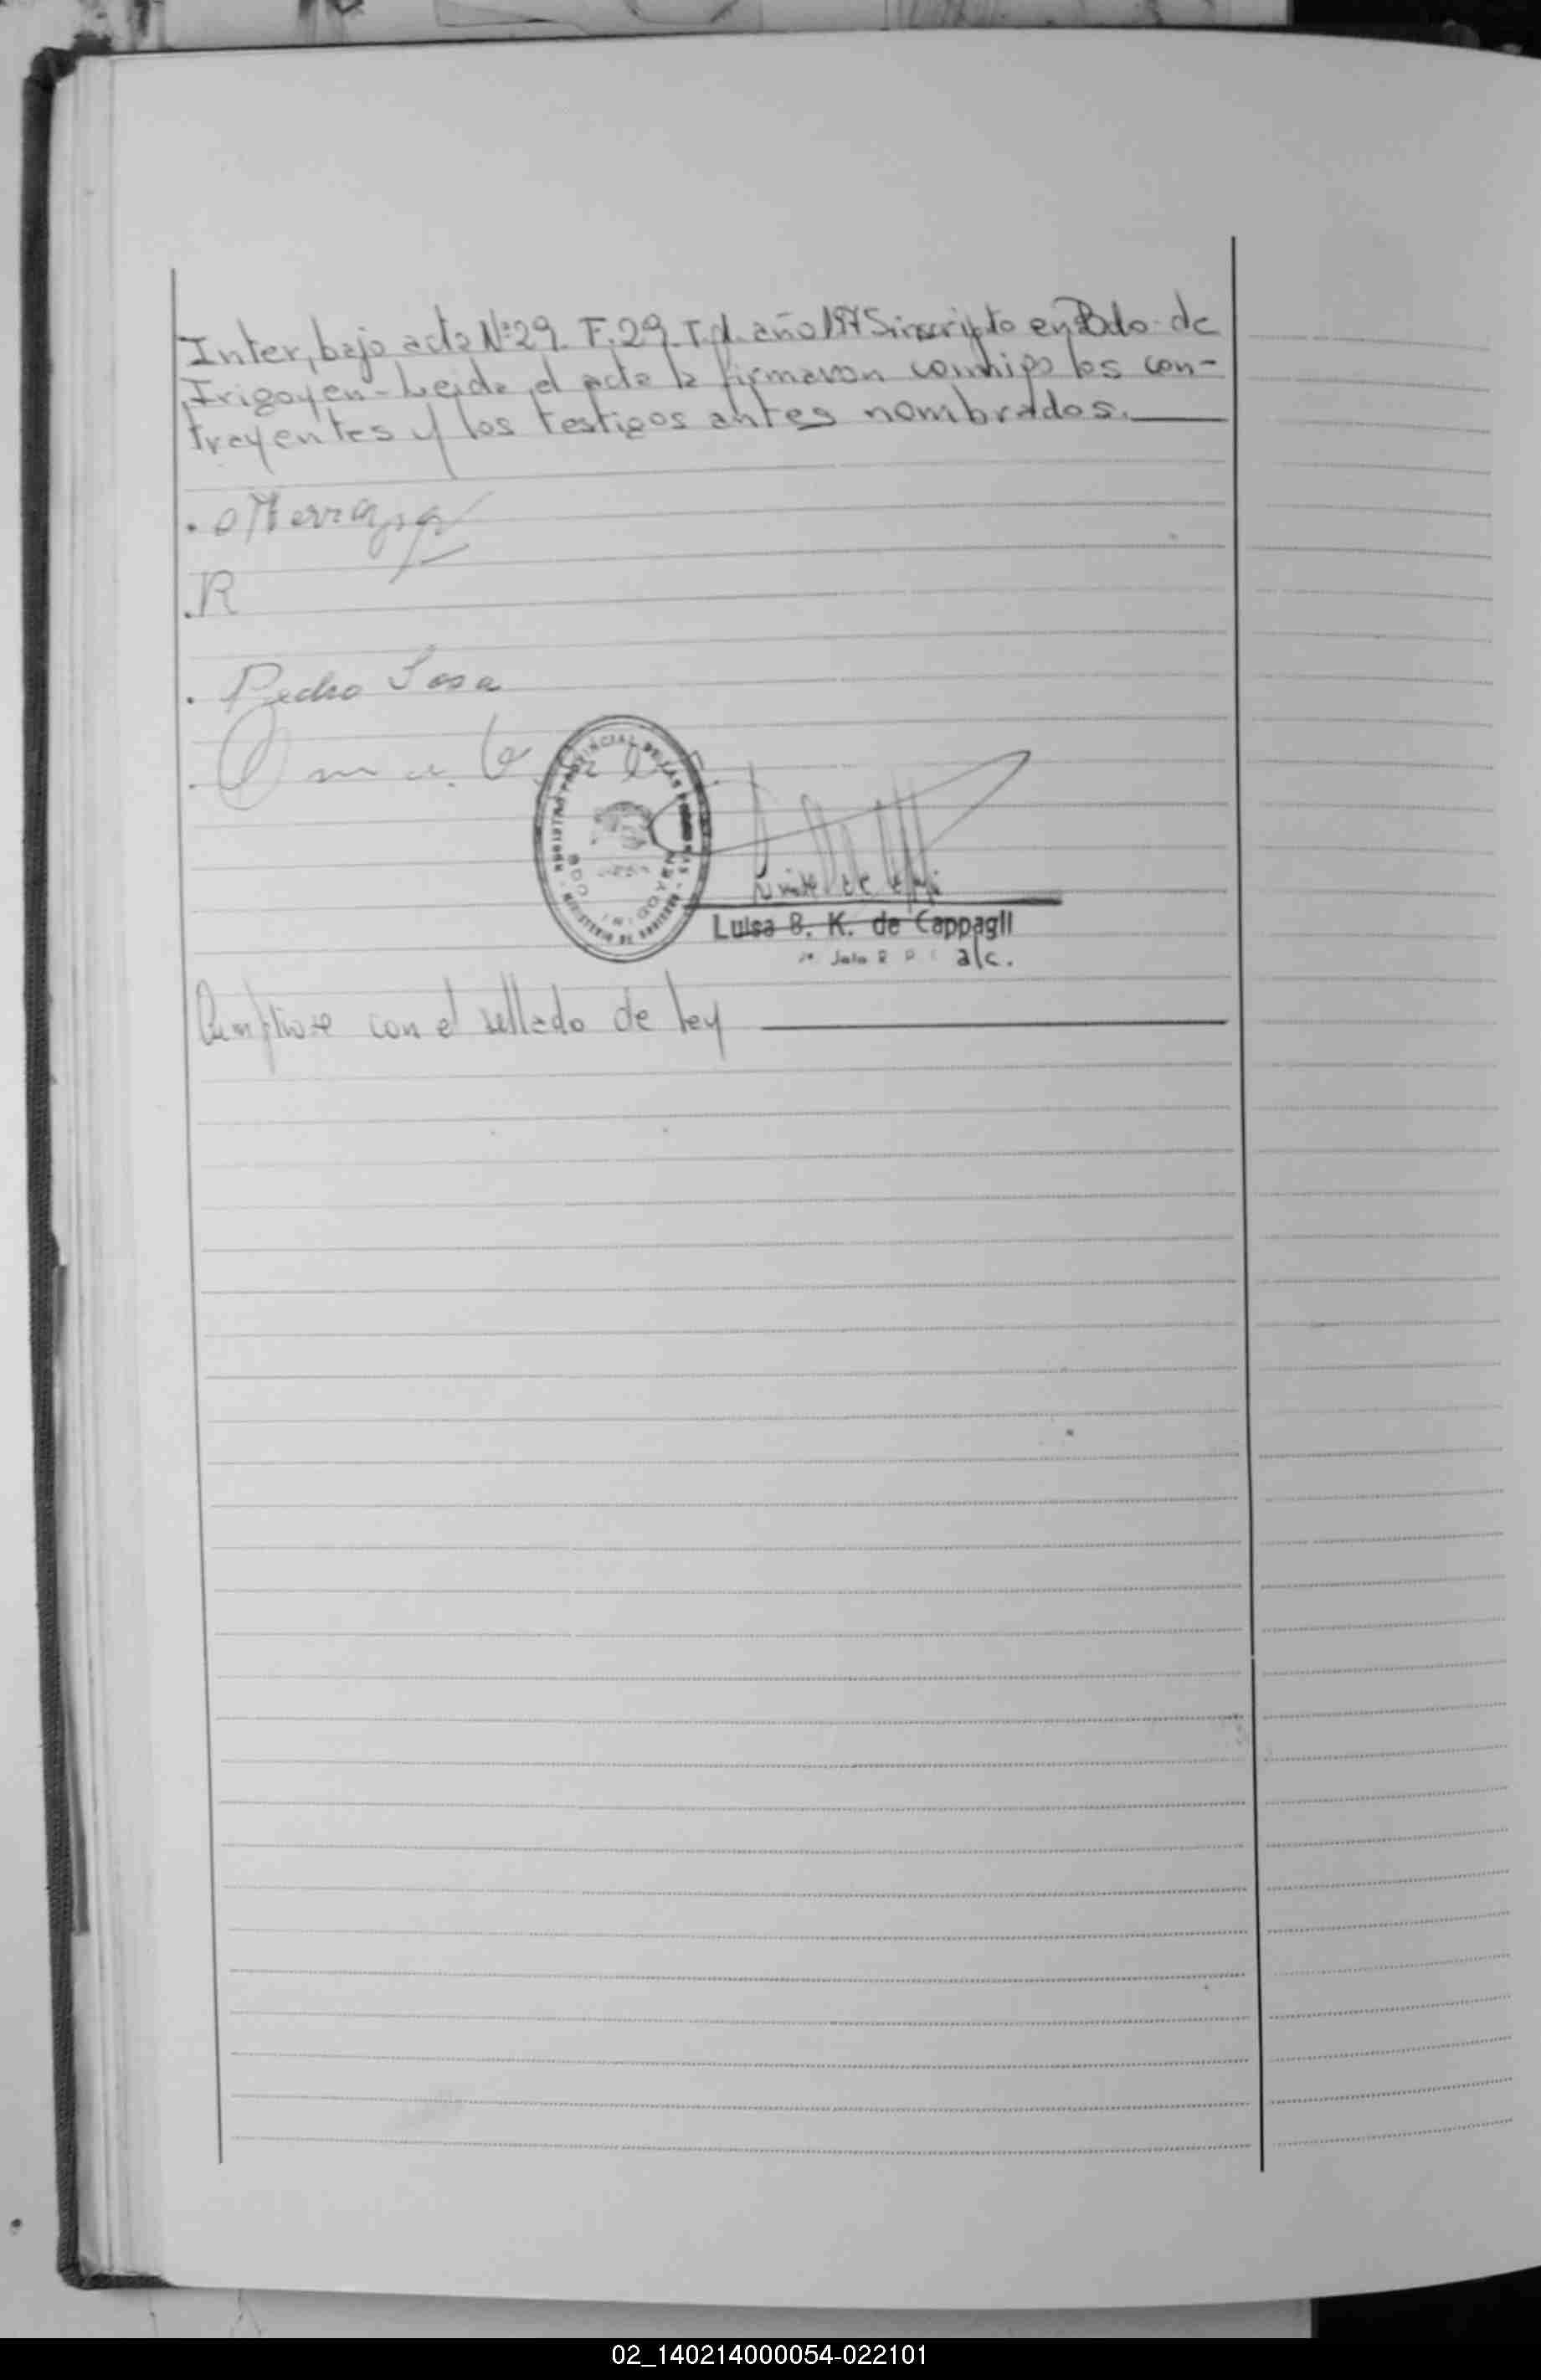 Inter, bajo acta Nº29 F.29 T.1 año 1975 inscripto en Bdo. de
Irigoyen - Leida el acta la firmaron conmigo los con-
trayentes y los testigos antes nombrados.
R
Pedro Sosa
REGISTRO PROVINCIAL DE LAS PERSONAS - MINISTERIO DE GOBIERNO
BDO IRIGOYEN
Luisa B. K. de Cappagli
a/c.
Cumpliose con el sellado de ley
02_140214000054-022101